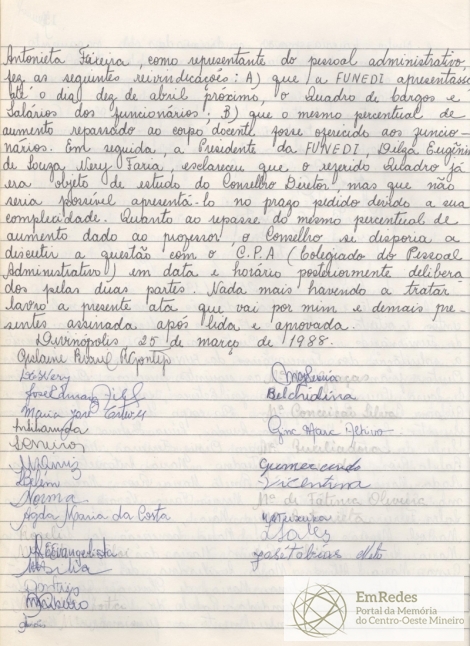 Antonieta Faieira, como representante do pessoal administrativo,
fez as seguintes reivindicações: A) que a FUNEDI apresentasse
até o dia dez de abril próximo, o Quadro de Cargos e
Salários dos funcionários; B) que o mesmo percentual de
aumento repassado ao corpo docente fosse oferecido aos funcio-
nários. Em seguida, a Presidente da FUNEDI, Dilza Eugênia
de Souza Nery Faria, esclareceu que o referido Quadro já
era objeto de estudo do Conselho Diretor, mas que não
seria possível apresentá-lo no prazo pedido devido a sua
complexidade. Quanto ao repasse do mesmo percentual de
aumento dado ao professor, o Conselho se disporia a
discutir a questão com o C.P.A (Colegiado do Pessoal
Administrativo) em data e horário posteriormente delibera
dos pelas duas partes. Nada mais havendo a tratar
lavro a presente ata que vai por mim e demais pre-
sentes assinada após lida e aprovada.
Divinópolis 25 de março de 1988.
Belchidina
Maria José
Gumercindo
Vicentina
Belém
Norma
Agda Maria da Costa
Sales
Evangelista
Silva
EmRedes
Portal da Memória
do Centro-Oeste Mineiro